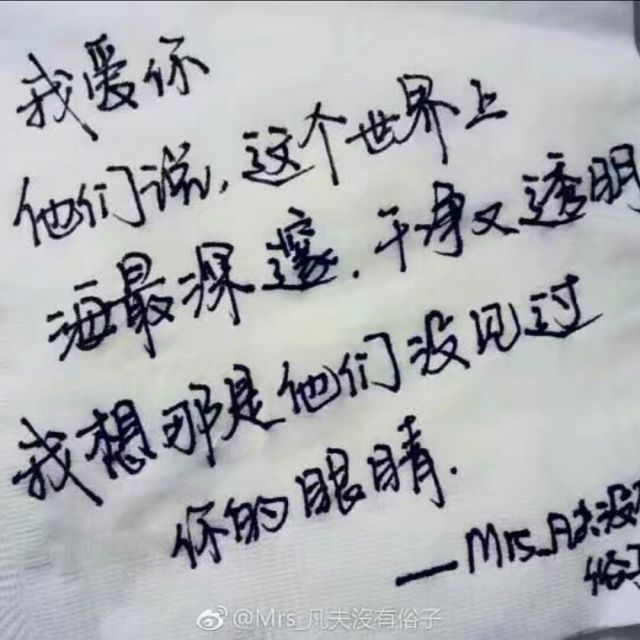 我爱你
他们说,这个世界上
海最深邃.干净又透明
我想那是他们没见过
你的眼睛.
—Mrs_凡夫没有
俗子
@Mrs_凡夫沒有俗子